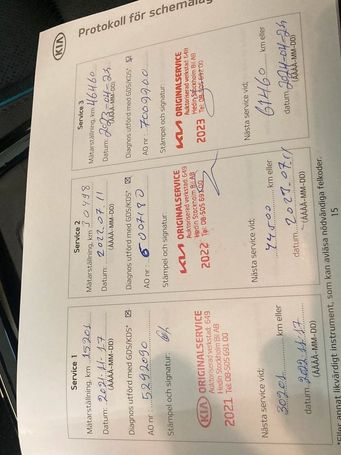 KIA
Protokoll för schemalag
Service 1
Mätarställning, km: 15201
Datum: 2021-11-17
(ÅÅÅÅ-MM-DD)
Diagnos utförd med GDS/KDS* ☒
AO nr.: 5292090
Stämpel och signatur:
KIA ORIGINALSERVICE
Auktoriserad verkstad: 649
Hedin Stockholm Bil AB
2021 Tel. 08-505 691 00
Nästa service vid:
30201 km eller
datum 2022-11-17
(ÅÅÅÅ-MM-DD)
Service 2
Mätarställning, km: 30498
Datum: 2022.07.11
(ÅÅÅÅ-MM-DD)
Diagnos utförd med GDS/KDS* ☒
AO nr.: 6007180
Stämpel och signatur:
KIA ORIGINALSERVICE
Auktoriserad verkstad: 649
Hedin Stockholm Bil AB
2022 Tel. 08-505 691 00
Nästa service vid:
km eller
datum: 2023.07.11
(ÅÅÅÅ-MM-DD)
Service 3
Mätarställning, km: 46460
Datum: 2023-04-25
(ÅÅÅÅ-MM-DD)
Diagnos utförd med GDS/KDS* ☒
AO nr.: 7009900
Stämpel och signatur:
KIA ORIGINALSERVICE
Auktoriserad verkstad: 649
Hedin Stockholm Bil AB
2023 Tel. 08-505 691 00
Nästa service vid:
61460 km eller
datum: 2024-04-25
(ÅÅÅÅ-MM-DD)
eller annat likvärdigt instrument, som kan avläsa nödvändiga felkoder.
15